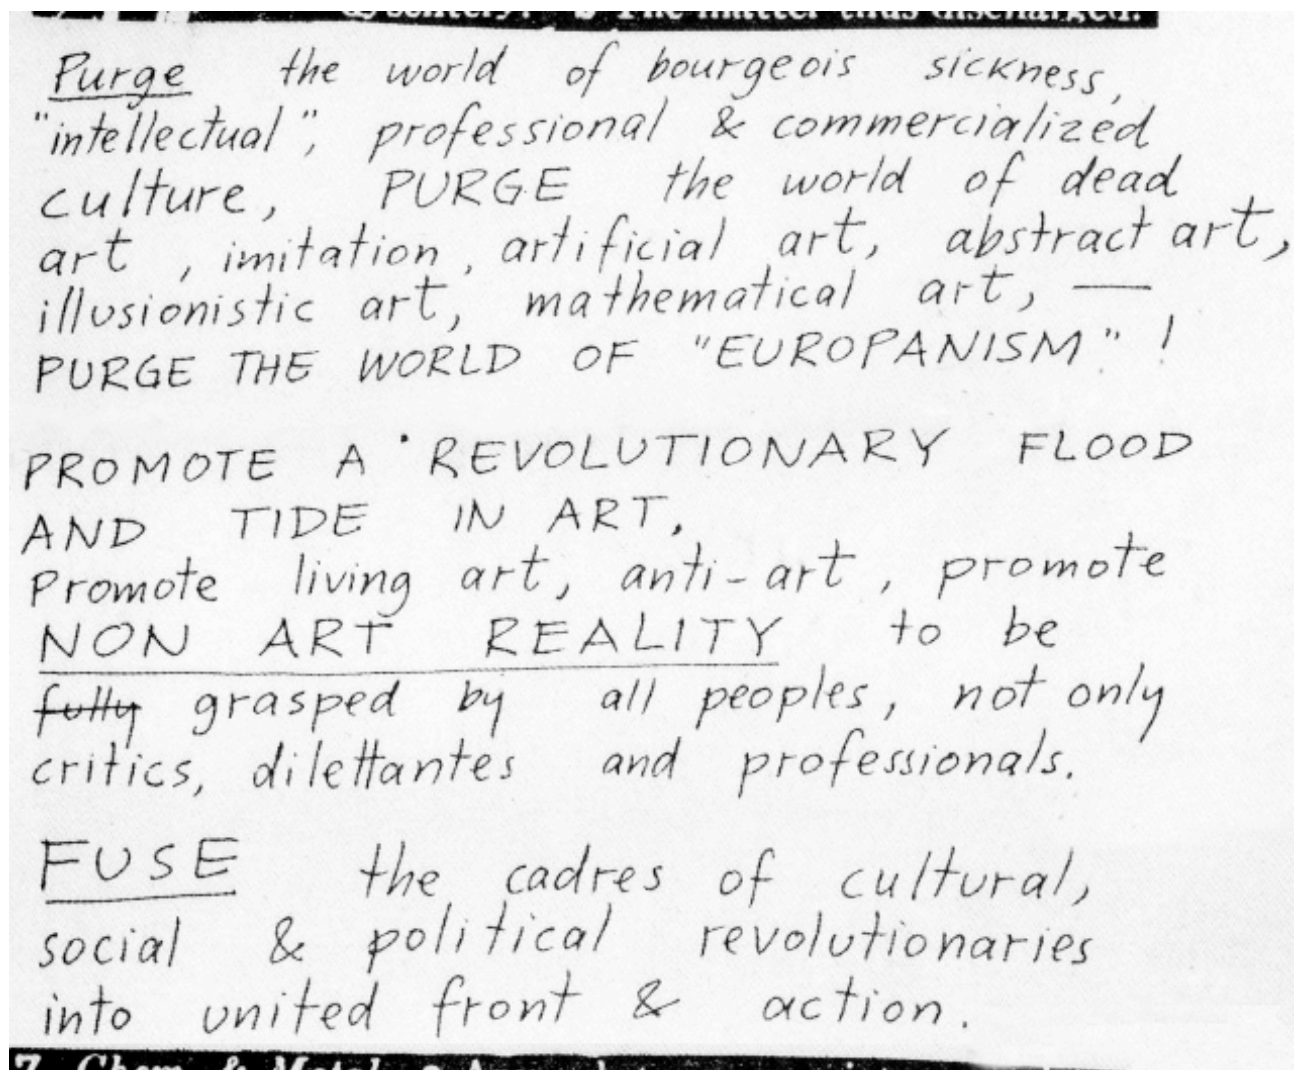 dysentery. The matter thus discharged.
Purge the world of bourgeois sickness,
"intellectual", professional & commercialized
culture, PURGE the world of dead
art, imitation, artificial art, abstract art,
illusionistic art, mathematical art, —
PURGE THE WORLD OF "EUROPANISM"!
PROMOTE A REVOLUTIONARY FLOOD
AND TIDE IN ART,
Promote living art, anti-art, promote
NON ART REALITY to be
fully grasped by all peoples, not only
critics, dilettantes and professionals.
FUSE the cadres of cultural,
social & political revolutionaries
into united front & action.
7. Chem. & Metal.